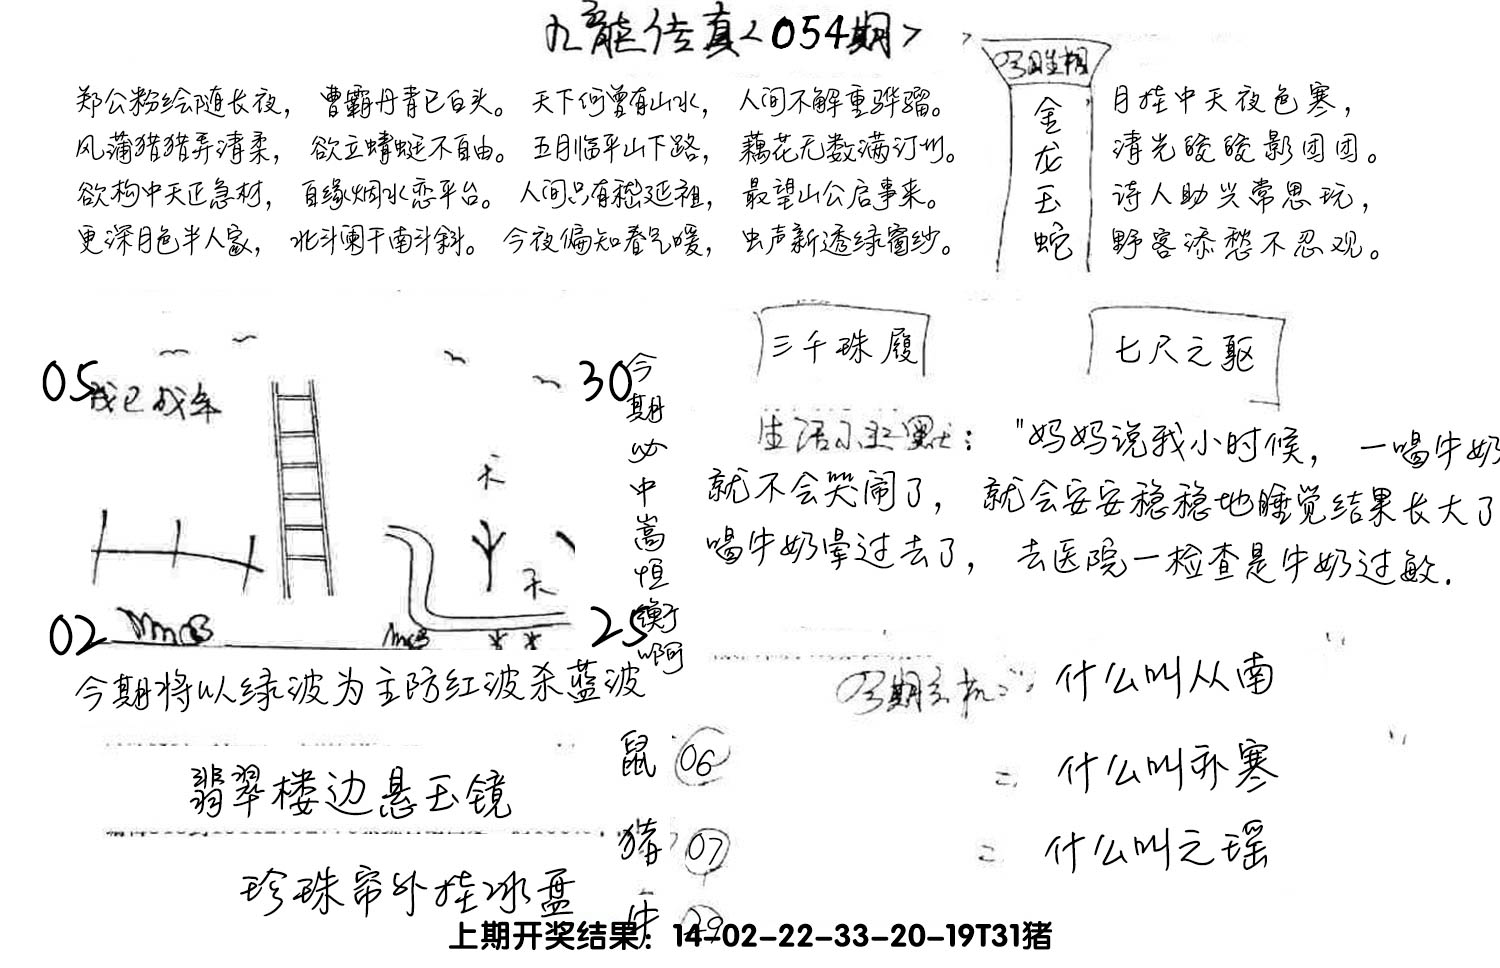 九龙传真<054期>
今期生相
金龙玉蛇
郑公粉绘随长夜，曹霸丹青已白头。天下何曾有山水，人间不解重骅骝。
风蒲猎猎弄清柔，欲立蜻蜓不自由。五月临平山下路，藕花无数满汀州。
欲构中天正急材，自缘烟水恋平台。人间只有嵇延祖，最望山公启事来。
更深月色半人家，北斗阑干南斗斜。今夜偏知春气暖，虫声新透绿窗纱。
月挂中天夜色寒，
清光皎皎影团团。
诗人助兴常思玩，
野客添愁不忍观。
三千珠履
七尺之躯
05
30
天
天
02
25
今期必中嵩恒衡啊
生活幽默："妈妈说我小时候，一喝牛奶
就不会哭闹了，就会安安稳稳地睡觉结果长大了
喝牛奶晕过去了，去医院一检查是牛奶过敏.
今期将以绿波为主防红波杀蓝波
今期玄机：什么叫从南
什么叫孙寒
什么叫元瑶
翡翠楼边悬玉镜
珍珠帘外挂冰盘
鼠 06
猪 07
牛 29
上期开奖结果：14-02-22-33-20-19T31猪